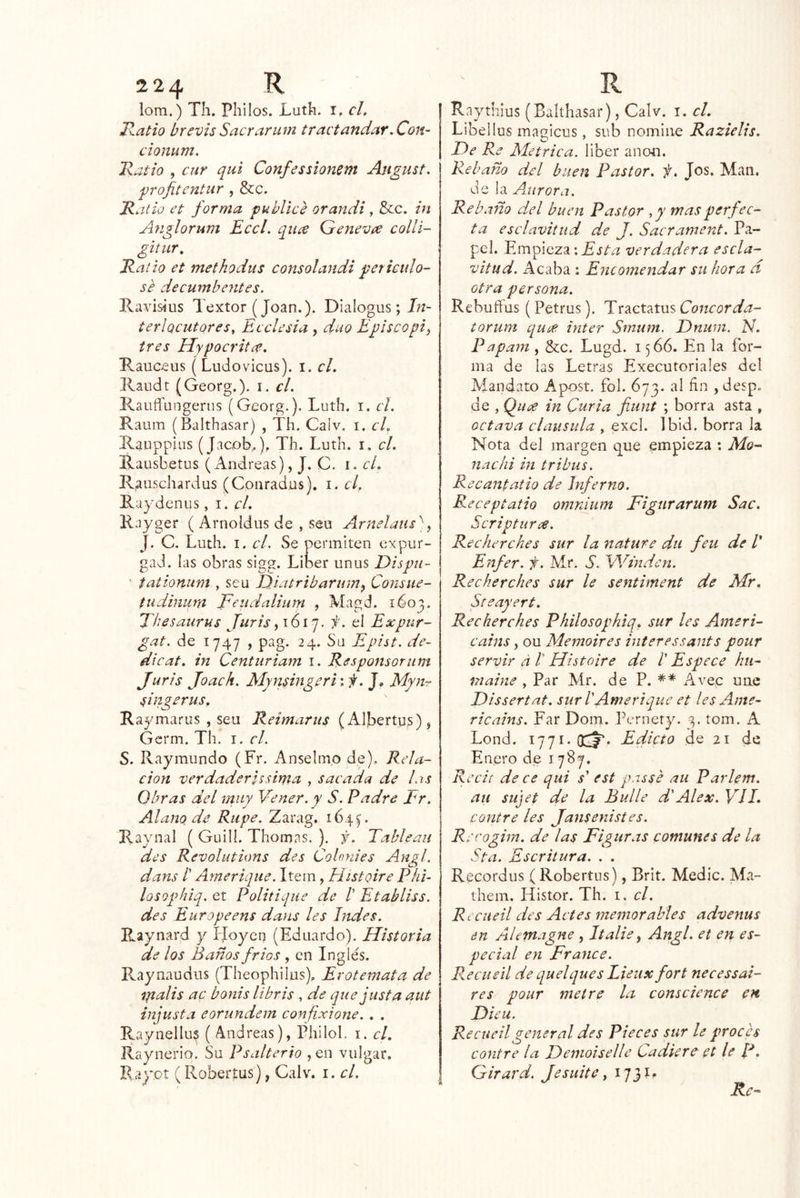 224 R
lom.) Th. Philos. Luth. 1. cl.
Ratio brevis Sacrarum tractandar. Con-
cionum.
Ratio , cur qui Confessionem August.
profitentur , &c.
Ratio et forma publicè orandi, &c. in
Anglorum Eccl. quæ Genevæ colli-
gitur.
Ratio et methodus consolandi periculo-
sè decumbentes.
Ravisius Textor (Joan.). Dialogus; In-
terlocutores, Ecclesia , duo Episcopi,
tres Hypocritæ.
Rauceus (Ludovicus). 1. cl.
Raudt (Georg.). 1. cl.
Rauffungerus (Georg.). Luth. 1. cl.
Raum (Balthasar) , Th. Calv. 1. cl.
Rauppius (Jacob.). Th. Luth. 1. cl.
Rausbetus (Andreas), J. C. 1. cl.
Rauschardus (Conradus). 1. cl.
Raydenus, 1. cl.
Rayger (Arnoldus de , seu Arnelaus),
J. C. Luth. 1. cl. Se permiten expur-
gad. las obras sigg. Liber unus Dispu-
tationum , seu Diatribarum, Consue-
tudinum Feudalium , Magd. 1603.
Thesaurus Juris, 1617. ɏ. el Expur-
gat. de 1747 , pag. 24. Su Epist. de-
dicat. in Centuriam 1. Responsorum
Juris Joach. Mynsingeri: ɏ. J. Myn-
singerus.
Raymarus , seu Reimarus (Albertus),
Germ. Th. 1. cl.
S. Raymundo (Fr. Anselmo de). Rela-
cion verdaderissima , sacada de las
Obras del muy Vener. y S. Padre Fr.
Alano de Rupe. Zarag. 1645.
Raynal (Guill. Thomas.). ɏ. Tableau
des Revolutions des Colonies Angl.
dans l' Amerique. Item, Histoire Phi-
losophiq. et Politique de l' Etabliss.
des Europeens dans les Indes.
Raynard y Hoyen (Eduardo). Historia
de los Baños frios , en Inglés.
Raynaudus (Theophilus). Erotemata de
malis ac bonis libris , de que justa aut
injusta eorundem confixione. . .
Raynellus (Andreas), Philol. 1. cl.
Raynerio. Su Psalterio , en vulgar.
Rayot (Robertus), Calv. 1. cl.
R
Raythius (Balthasar), Calv. 1. cl.
Libellus magicus, sub nomine Razielis.
De Re Metrica. liber anon.
Rebaño del buen Pastor. ɏ. Jos. Man.
de la Aurora.
Rebaño del buen Pastor , y mas perfec-
ta esclavitud de J. Sacrament. Pa-
pel. Empieza: Esta verdadera escla-
vitud. Acaba : Encomendar su hora á
otra persona.
Rebuffus (Petrus). Tractatus Concorda-
torum quæ inter Smum. Dnum. N.
Papam, &c. Lugd. 1566. En la for-
ma de las Letras Executoriales del
Mandato Apost. fol. 673. al fin , desp.
de , Quæ in Curia fiunt ; borra asta ,
octava clausula , excl. Ibid. borra la
Nota del margen que empieza : Mo-
nachi in tribus.
Recantatio de Inferno.
Receptatio omnium Figurarum Sac.
Scripturæ.
Recherches sur la nature du feu de l'
Enfer. ɏ. Mr. S. Winden.
Recherches sur le sentiment de Mr.
Steayert.
Recherches Philosophiq. sur les Ameri-
cains, ou Memoires interessants pour
servir à l' Histoire de l' Espece hu-
maine , Par Mr. de P. ** Avec une
Dissertat. sur l' Amerique et les Ame-
ricains. Par Dom. Pernety. 3. tom. A
Lond. 1771. ☞. Edicto de 21 de
Enero de 1787.
Recit de ce qui s' est passè au Parlem.
au sujet de la Bulle d' Alex. VII.
contre les Jansenistes.
Recogim. de las Figuras comunes de la
Sta. Escritura. . .
Recordus (Robertus), Brit. Medic. Ma-
them. Histor. Th. 1. cl.
Recueil des Actes memorables advenus
en Alemagne , Italie, Angl. et en es-
pecial en France.
Recueil de quelques Lieux fort necessai-
res pour metre la conscience en
Dieu.
Recueil general des Pieces sur le procès
contre la Demoiselle Cadiere et le P.
Girard. Jesuite, 1731.
Re-